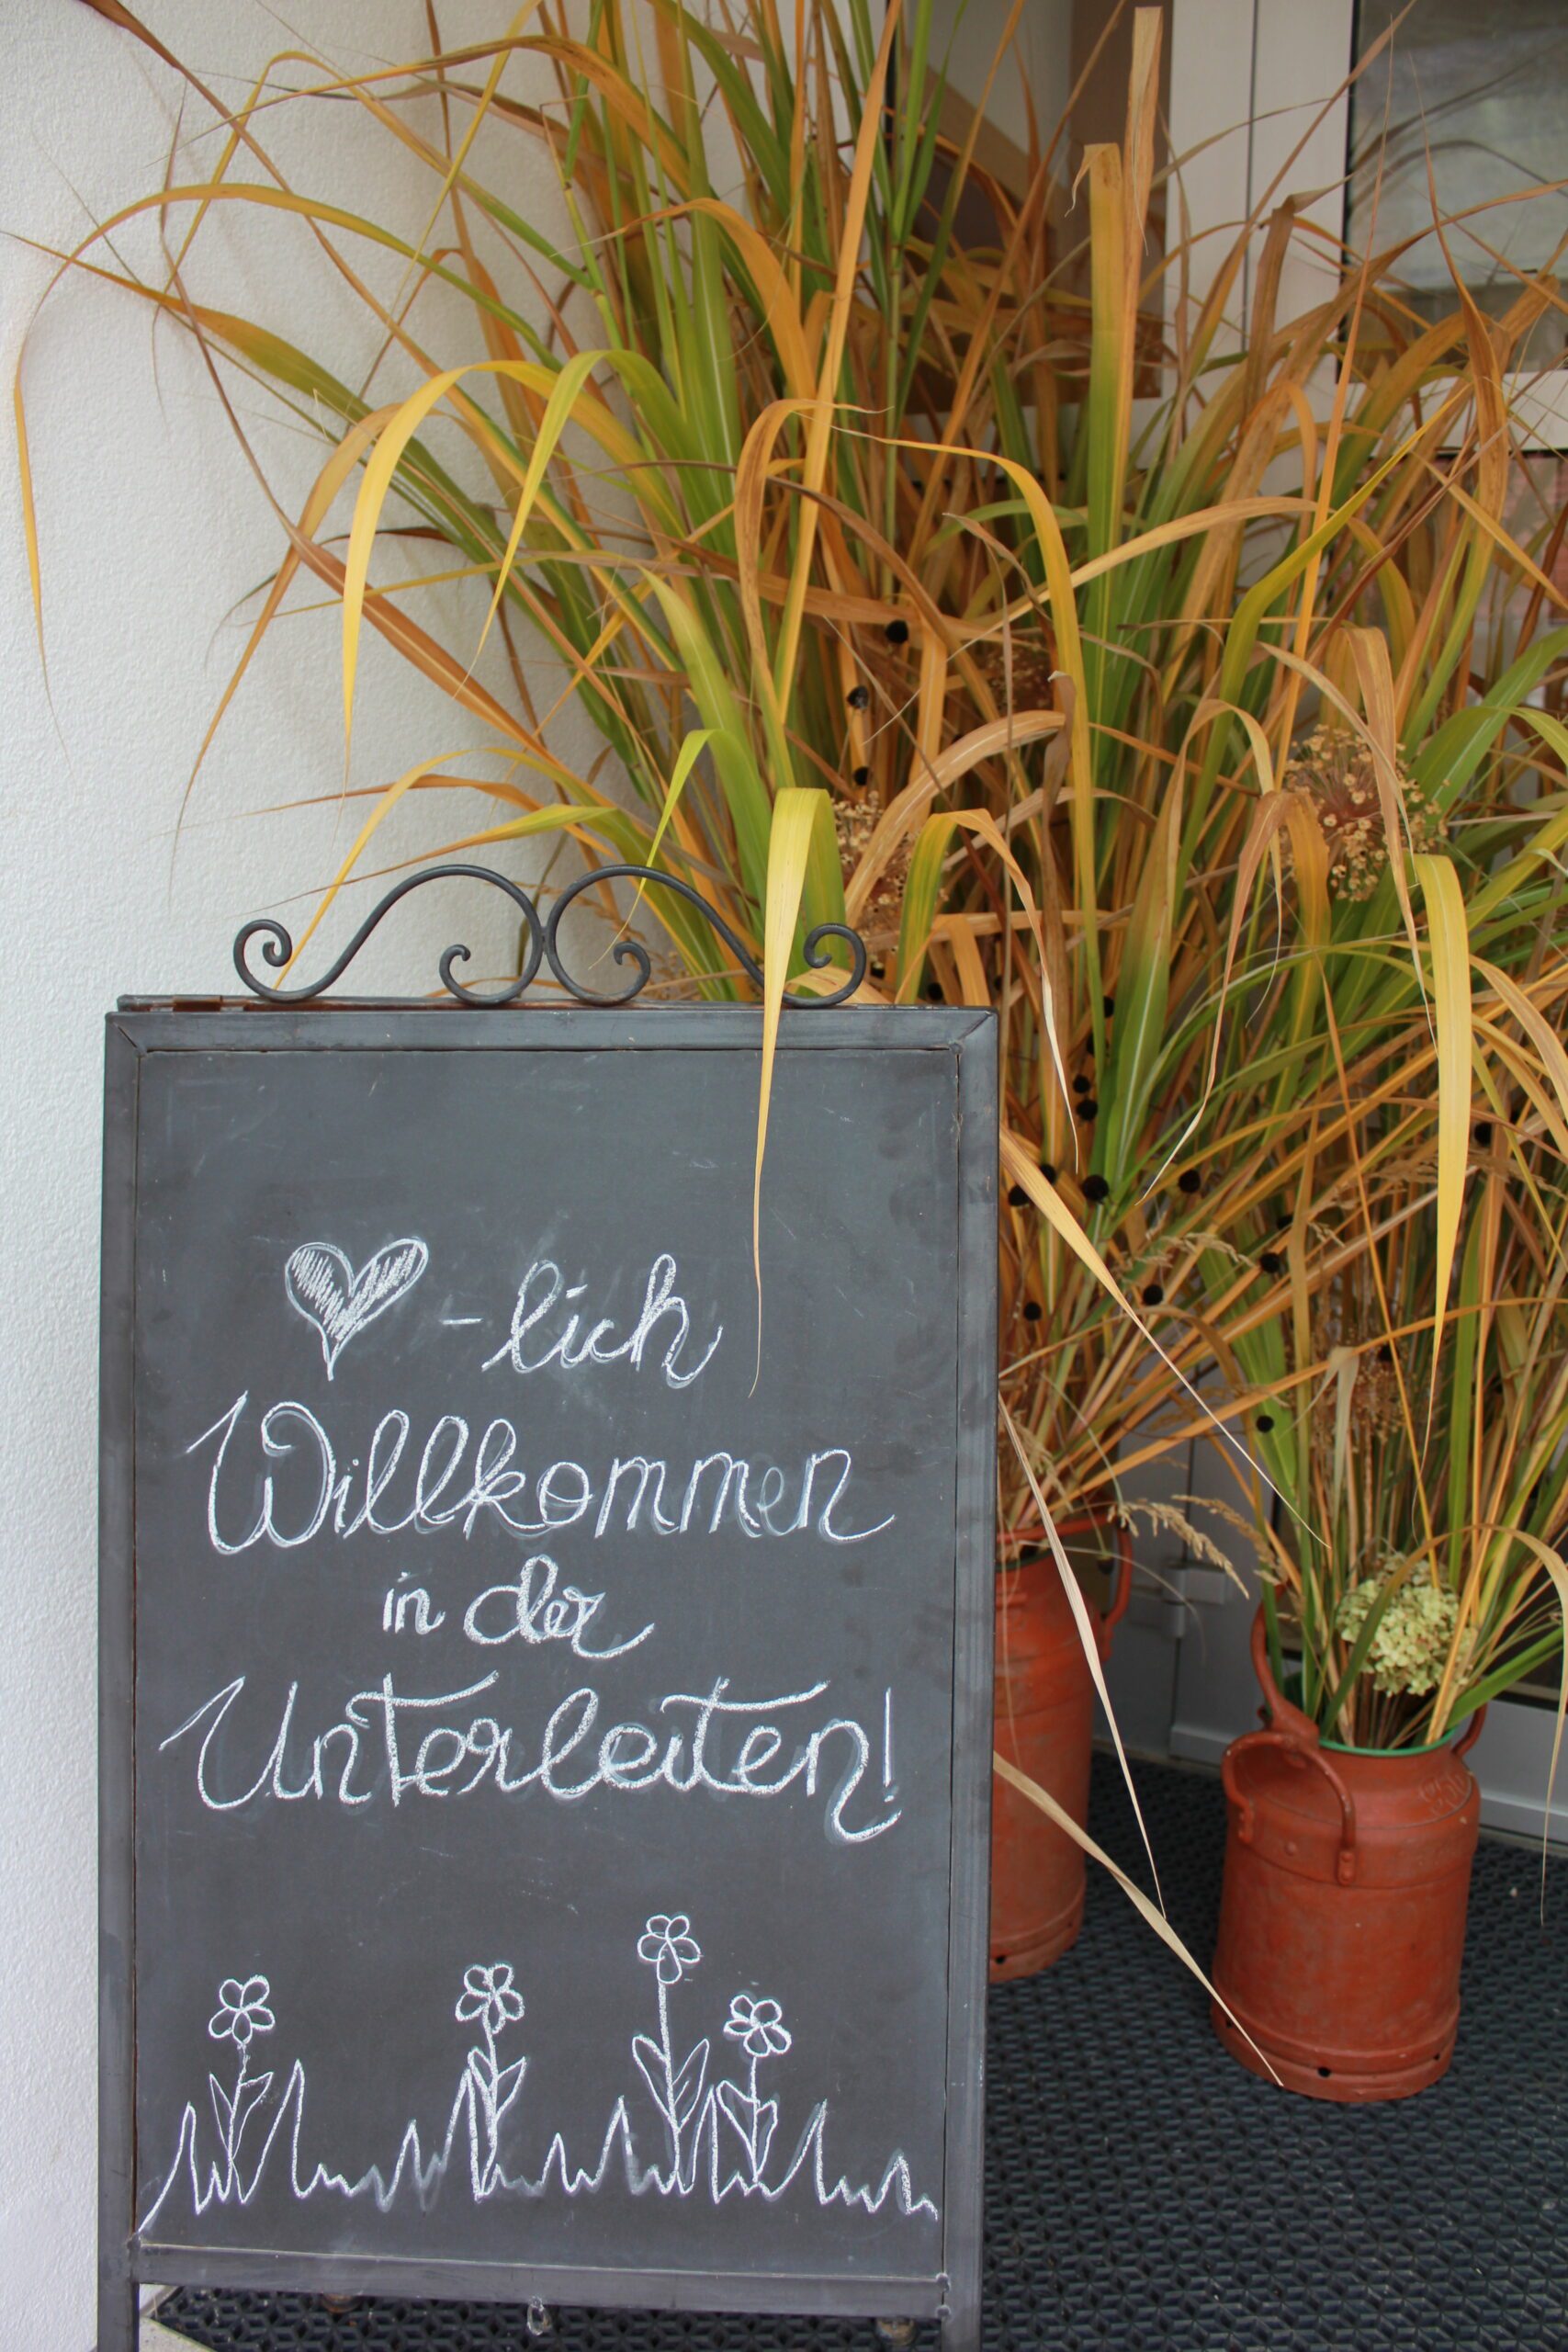 ♥-lich
Willkommen
in der
Unterleiten!